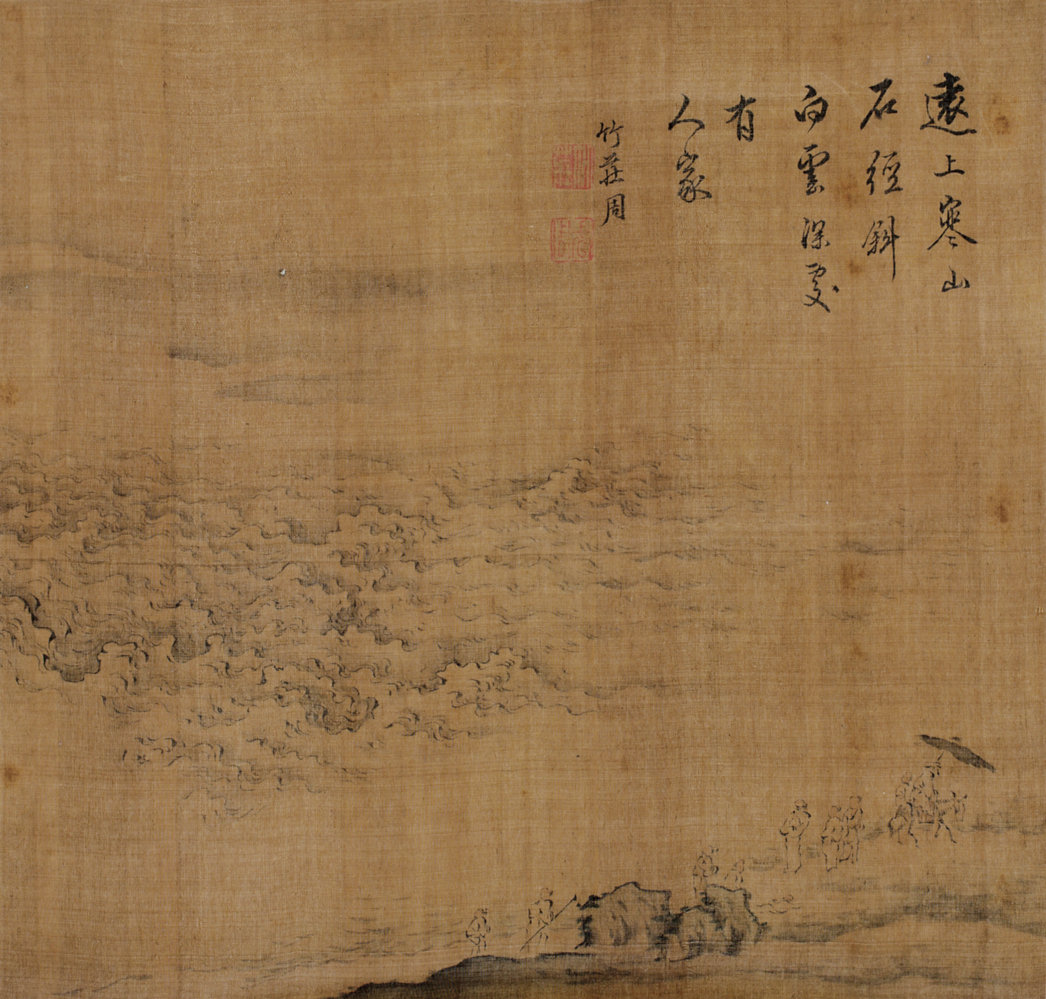 遠上寒山
石徑斜
白雲深處
有
人家
竹莊周